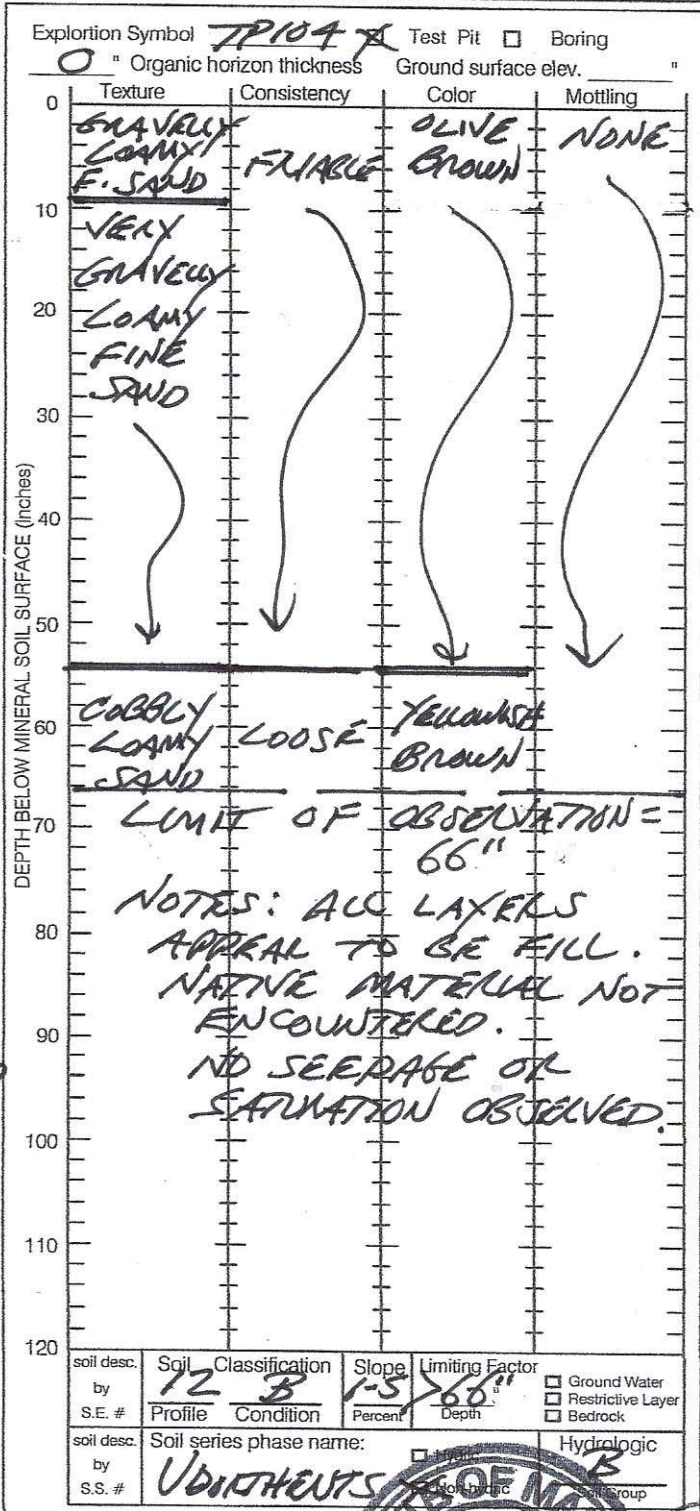 Explortion Symbol TP104 X Test Pit □ Boring
0 " Organic horizon thickness Ground surface elev. ______ "
Texture Consistency Color Mottling
DEPTH BELOW MINERAL SOIL SURFACE (Inches)
0
GRAVELLY
LOAMY
F. SAND
FRIABLE
OLIVE
BROWN
NONE
10
VERY
GRAVELLY
LOAMY
FINE
SAND
20
30
40
50
COBBLY
LOAMY
SAND
LOOSE
YELLOWISH
BROWN
60
LIMIT OF OBSERVATION =
66"
70
NOTES: ALL LAYERS
APPEAR TO BE FILL.
80
NATIVE MATERIAL NOT
ENCOUNTERED.
90
NO SEEPAGE OR
SATURATION OBSERVED.
100
110
120
soil desc. by S.E. #
Soil Classification Slope Limiting Factor
12 B 1-5 >66"
Profile Condition Percent Depth
□ Ground Water
□ Restrictive Layer
□ Bedrock
soil desc. by S.S. #
Soil series phase name:
UDORTHENTS
□ Hydric
Non-hydric
Hydrologic
B
Soil Group
OF